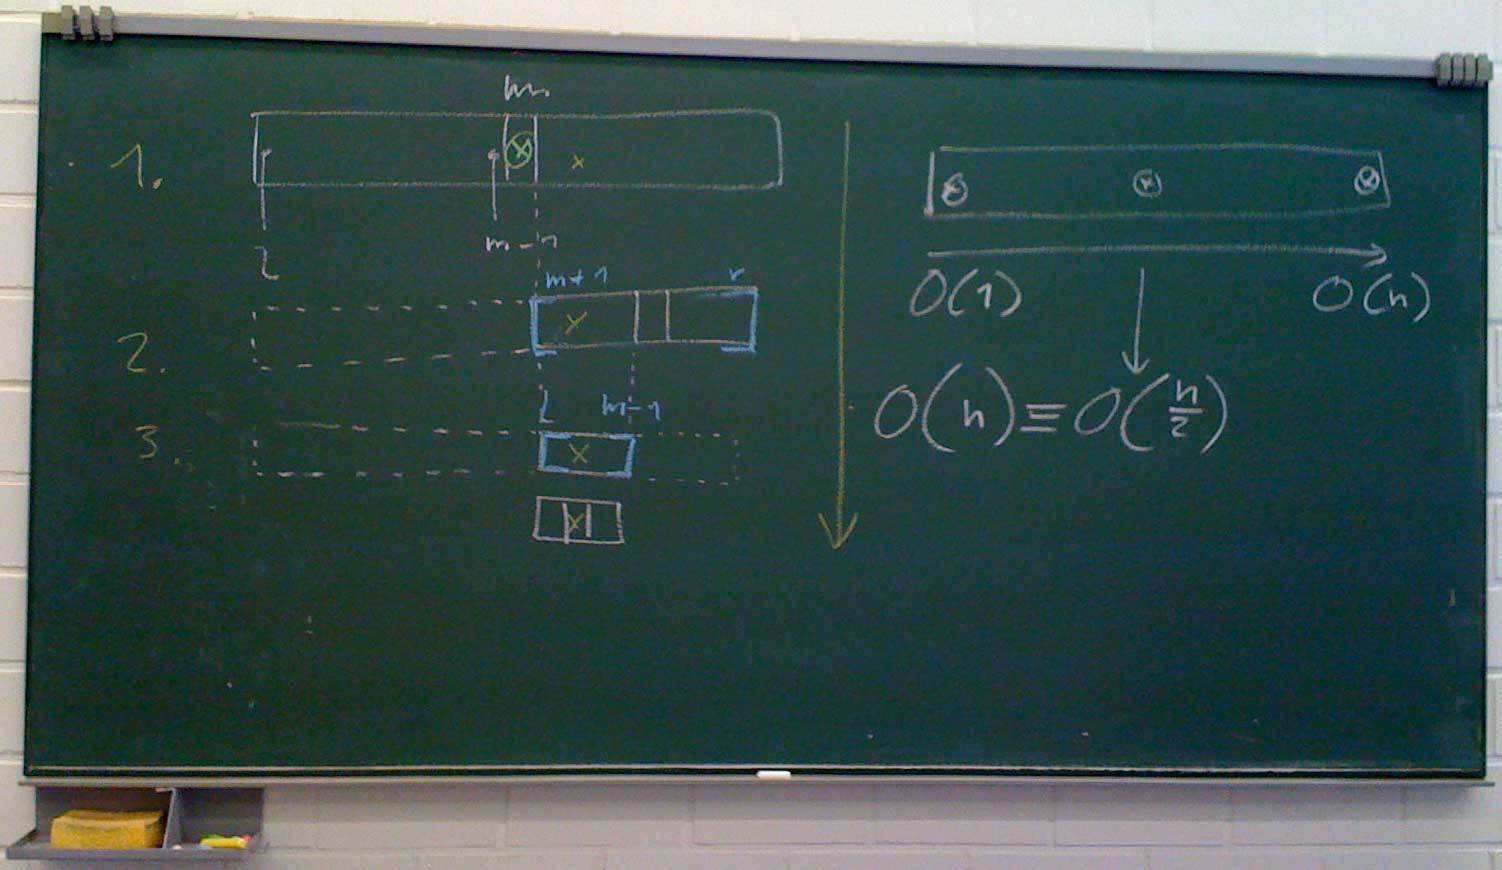 m
1.
x
x
l
m-1
m+1 r
2.
x
l m-1
3.
x
x
x x x
O(1) O(n)
O(n)≡O(n/2)